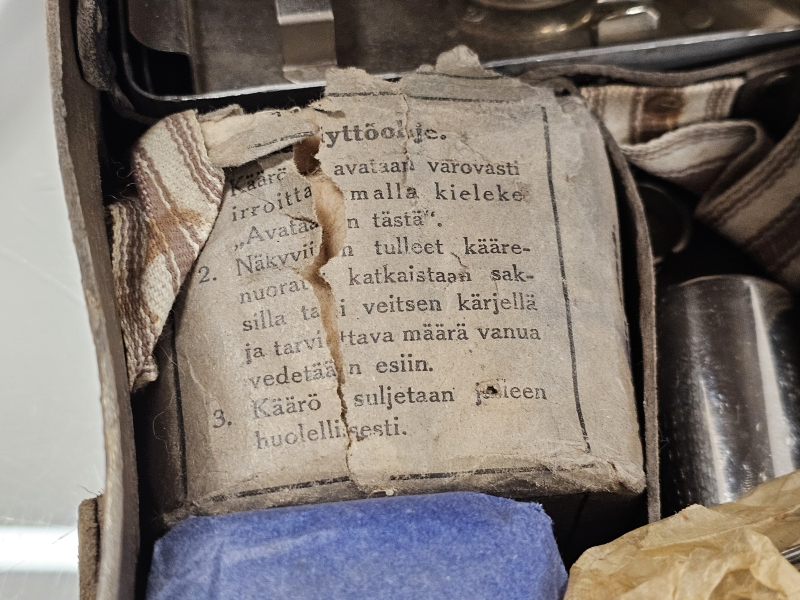 yttöohje.
Käärö avataan varovasti
irroitta malla kieleke
„Avataa n tästä“.
2. Näkyvii n tulleet kääre-
nuorat katkaistaan sak-
silla tai veitsen kärjellä
ja tarvi ttava määrä vanua
vedetää n esiin.
3. Käärö suljetaan jälleen
huolellisesti.